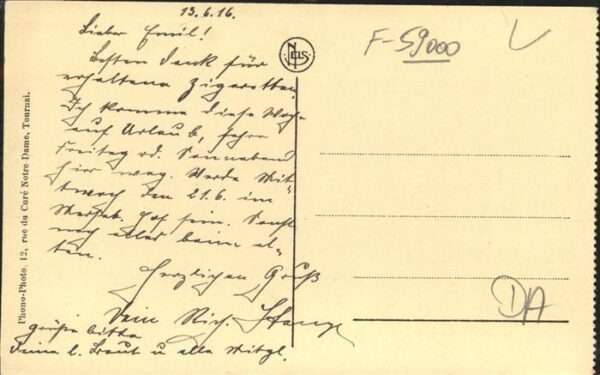 13.6.16.
Lieber Emil!
Besten Dank für
erhaltene Zigaretten
Ich komme diese Woch-
auf Urlaub, fahre
Freitag od. Sonnabend
hier weg. Werde Mit-
twoch den 21.6. im
Hof sein. Sonst
noch alles beim al-
ten.
Herzlichen Gruß
Dein Rich.
grüße bitte
Deine l. Braut u alle Mitgl.
NELS
F-59000
DA
Phono-Photo, 12, rue du Curé Notre Dame, Tournai.